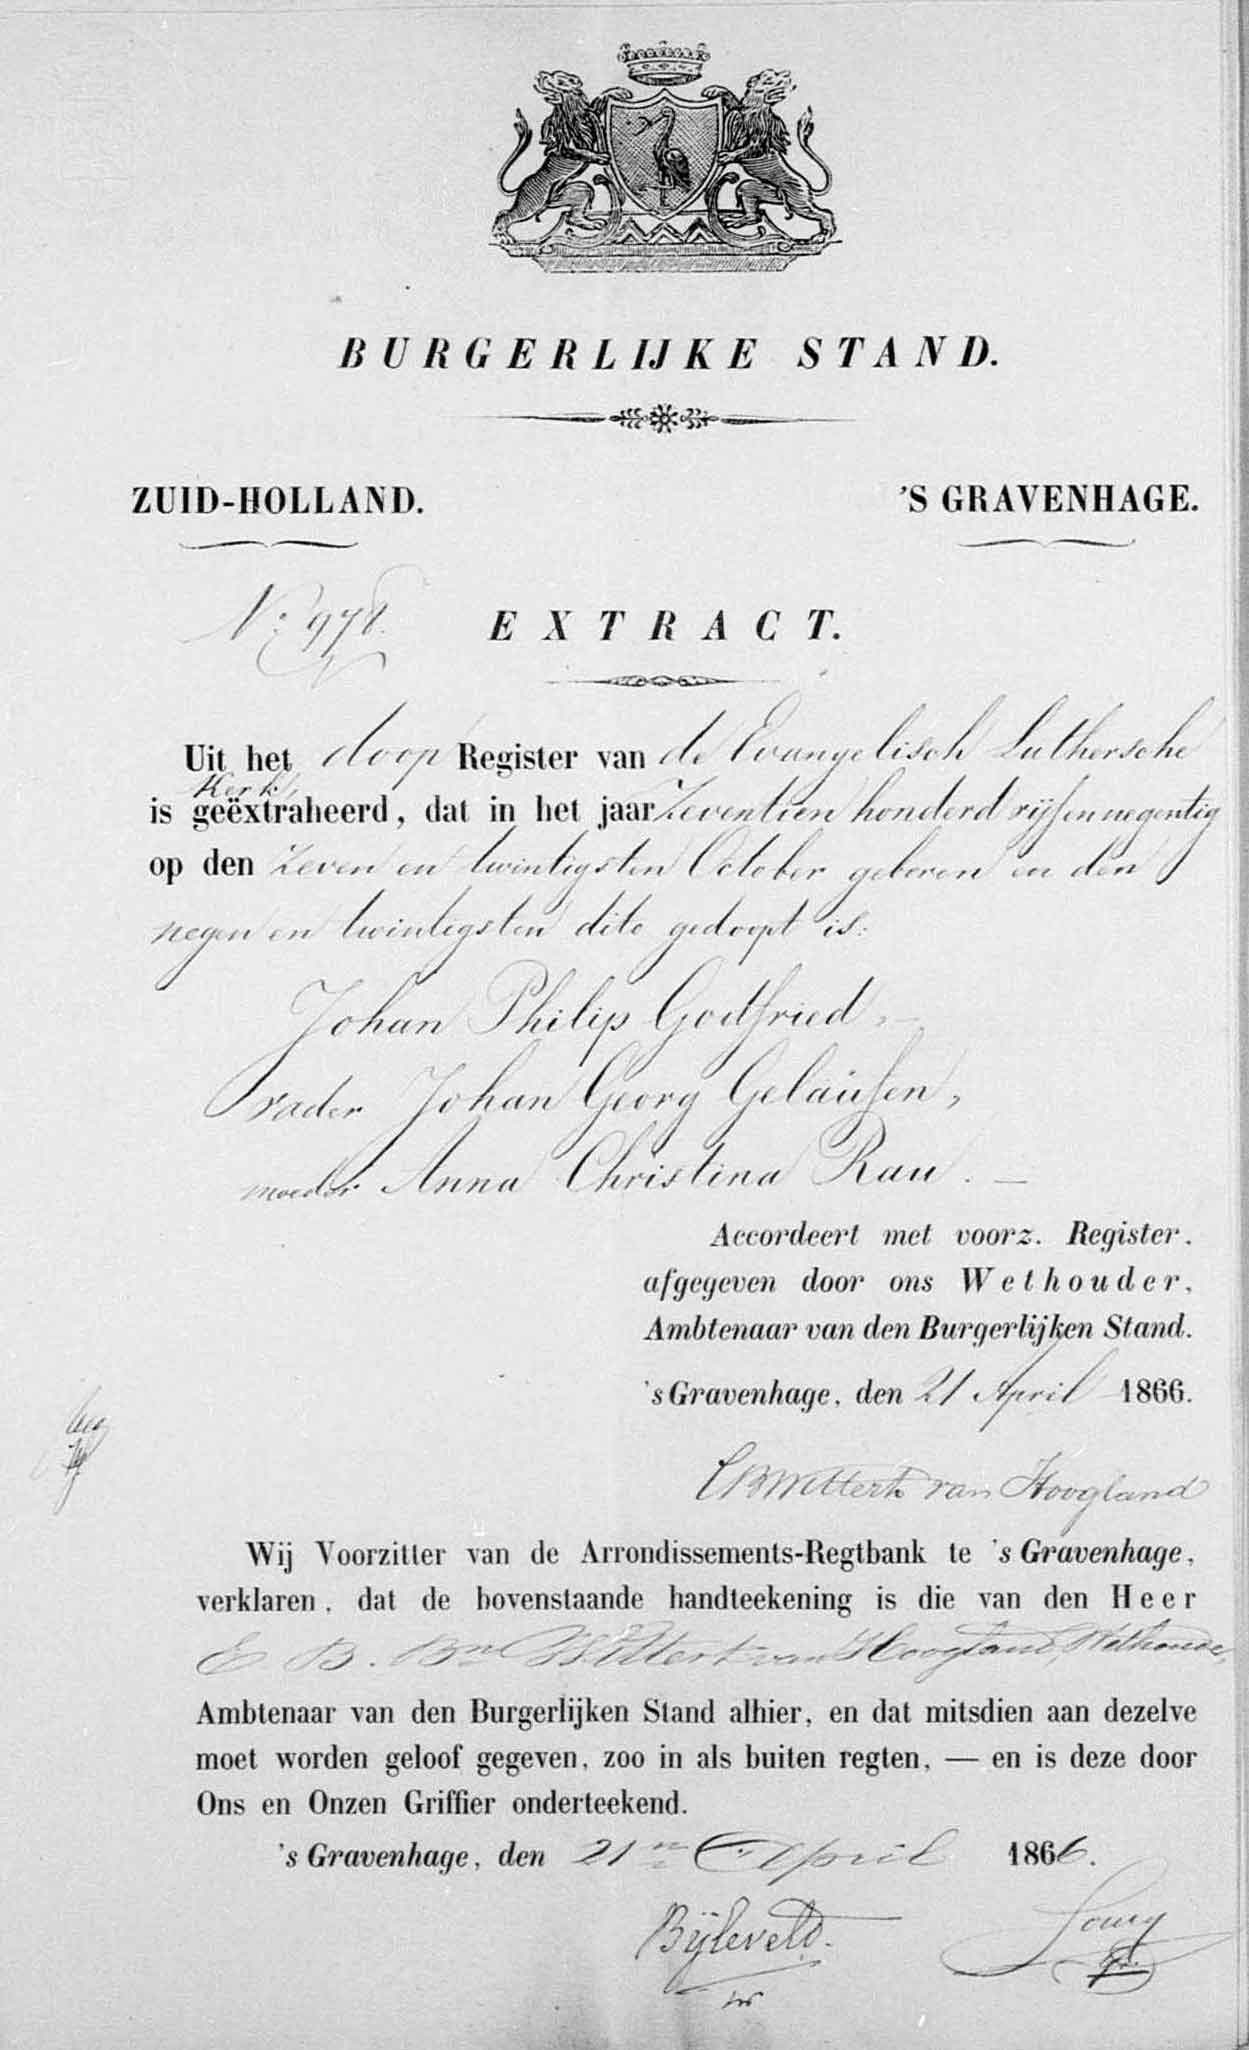 BURGERLIJKE STAND.
ZUID-HOLLAND. 'S GRAVENHAGE.
No. 978. EXTRACT.
Uit het doop Register van de Evangelisch Luthersche
Kerk,
is geëxtraheerd, dat in het jaar Zeventien honderd vijf en negentig
op den zeven en twintigsten October geboren en den
negen en twintigsten dito gedoopt is:
Johan Philip Godfried, —
vader Johan Georg Gelaüsen,
moeder Anna Christina Rau. —
Accordeert met voorz. Register.
afgegeven door ons Wethouder,
Ambtenaar van den Burgerlijken Stand.
's Gravenhage, den 21 April 1866.
EBWittert van Hoogland
Wij Voorzitter van de Arrondissements-Regtbank te 's Gravenhage,
verklaren, dat de bovenstaande handteekening is die van den Heer
E. B. Bn Wittert van Hoogland, Wethouder,
Ambtenaar van den Burgerlijken Stand alhier, en dat mitsdien aan dezelve
moet worden geloof gegeven, zoo in als buiten regten, — en is deze door
Ons en Onzen Griffier onderteekend.
's Gravenhage, den 21n April 1866.
Bijleveld.